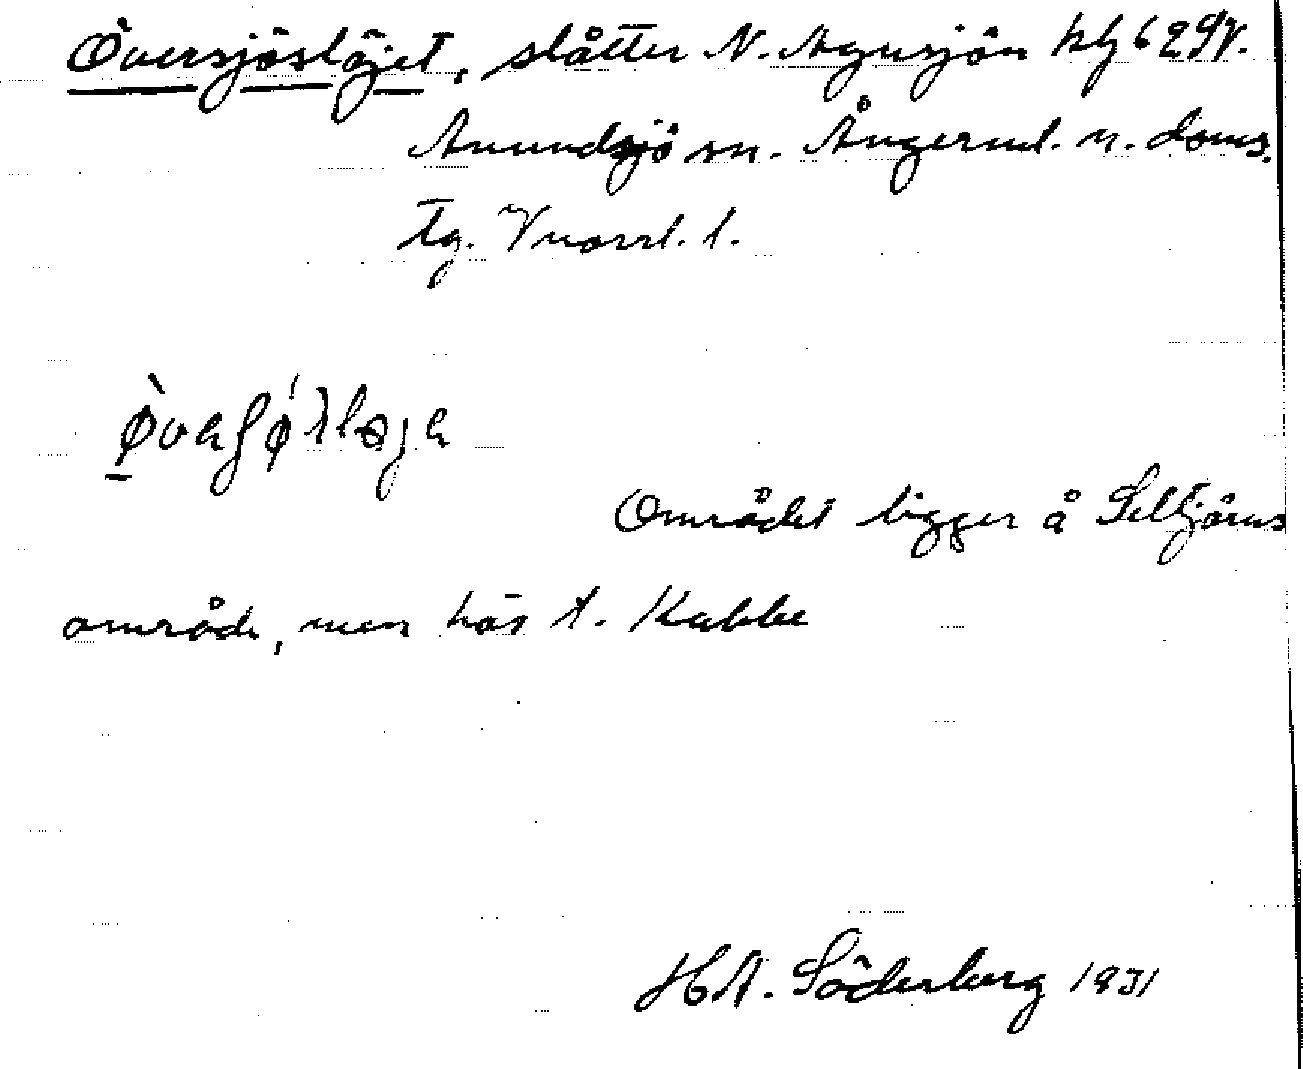 Översjöslöjet, slåtter N. Agnsjön hlj 629V.
Anundsjö sn. Ångerml. n. doms.
tg. Vnorrl. l.
Området ligger å Seltjärns
område, men hör t. Kubbe
H A. Söderberg 1931